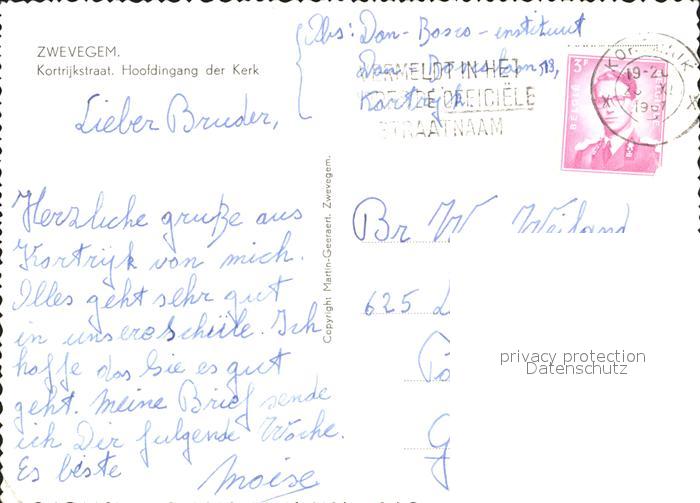 ZWEVEGEM.
Kortrijkstraat. Hoofdingang der Kerk
Abs: Don-Bosco-instituut
Kortrijk
VERMELDT IN HET
OFFICIËLE
STRAATNAAM
KORTRIJK
19-20
XI
1967
3F
BELGIE
Lieber Bruder,
Herzliche gruße aus
Kortrijk von mich.
Illes geht sehr gut
in unsere Schule. Ich
hoffe das Sie es gut
geht. Meine Brief sende
ich Dir fulgende Woche.
Es beste
Moise
Copyright Martin-Geeraert. Zwevegem.
Br W Weiland
625
privacy protection
Datenschutz